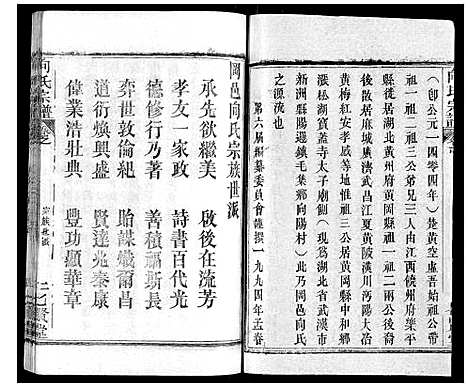 （即公元一四〇四年）從黃空虛吾始祖公帶
祖一祖二祖三人而由江西饒州府樂平
縣徙居湖北黃州府黃岡縣祖一祖二兩公
後散居麻城廣濟武昌江夏黃陂漢川沔陽大冶
黃梅紅安孝感祖三公居黃岡縣中和鄉
漲松湖京子畈太子廟側（現為湖北省武漢市
新洲縣陽邏鎮毛集鄉向陽村）此乃岡邑向氏
之源流也
第六屆編纂委員會謹撰一九九四年孟春
岡邑向氏宗族世派
承先欲繼美　啟後在流芳
孝友一家政　詩書百代光
德修行乃著　善積福斯長
奕世敦倫紀　貽謀燦爾昌
道衍煥興盛　賢達兆泰康
偉業浩壯典　豐功顯華章
向氏宗譜
宗族世派